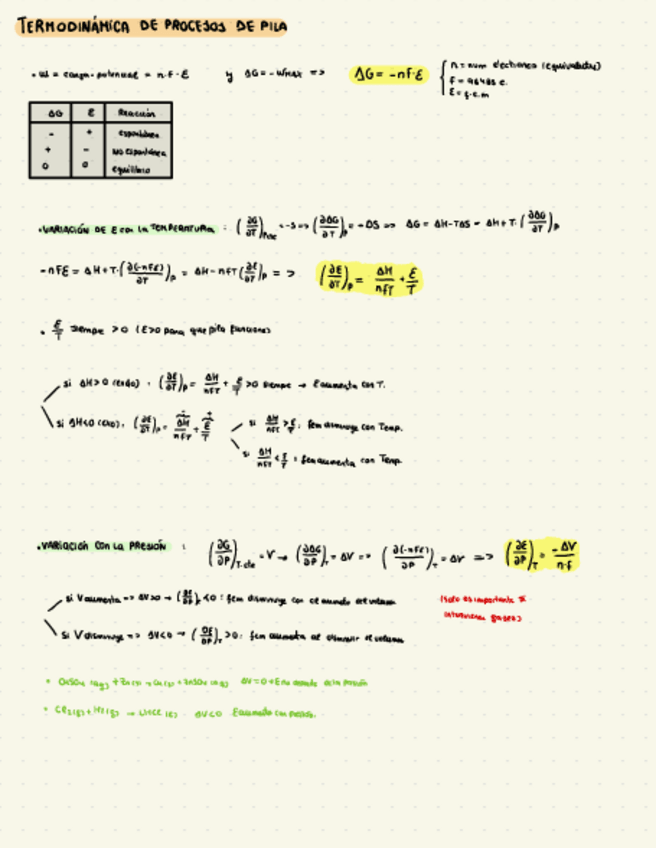 TERMODINÁMICA DE PROCESOS DE PILA
• W = carga · potencial = n·F·E y ΔG = -Wmax => ΔG = -nF·E { n = num electrones (equivalentes)
F = 96485 c.
E = f.e.m
ΔG E Reacción
- + espontánea
+ - no espontánea
0 0 equilibrio
• VARIACIÓN DE E con la TEMPERATURA : (∂G/∂T)P,cte = -S => (∂ΔG/∂T)P = -ΔS => ΔG = ΔH-TΔS = ΔH+T·(∂ΔG/∂T)P
-nFE = ΔH+T·(∂(-nFE)/∂T)P = ΔH-nFT(∂E/∂T)P => (∂E/∂T)P = ΔH/nFT + E/T
• E/T siempre >0 (E>0 para que pila funcione)
si ΔH>0 (endo) · (∂E/∂T)P = ΔH/nFT + E/T >0 siempre → E aumenta con T.
si ΔH<0 (exo) · (∂E/∂T)P = ΔH/nFT + E/T - +
si ΔH/nFT > E/T : fem disminuye con Temp.
si ΔH/nFT < E/T : fem aumenta con Temp.
• VARIACIÓN CON LA PRESIÓN : (∂G/∂P)T·cte = V → (∂ΔG/∂P)T = ΔV => (∂(-nFE)/∂P)T = ΔV => (∂E/∂P)T = -ΔV/n·F
si V aumenta => ΔV>0 → (∂E/∂P)T <0 : fem disminuye con el aumento del volumen
(solo es importante si
intervienen gases)
si V disminuye => ΔV<0 → (∂E/∂P)T >0 : fem aumenta al disminuir el volumen
ΔV=0 → E no depende de la presión
ΔV<0 E aumenta con presión.